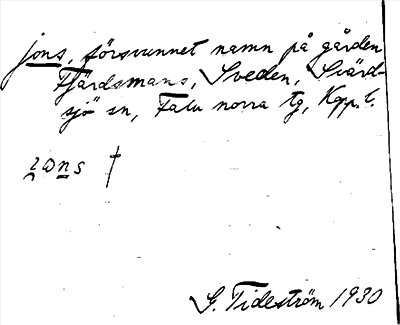 jons, försvunnet namn på gården
Fjärdsmans, Sveden, Svärd-
sjö sn, Falu norra tg, Kopp. l.
ɪωns †
G. Tideström 1930